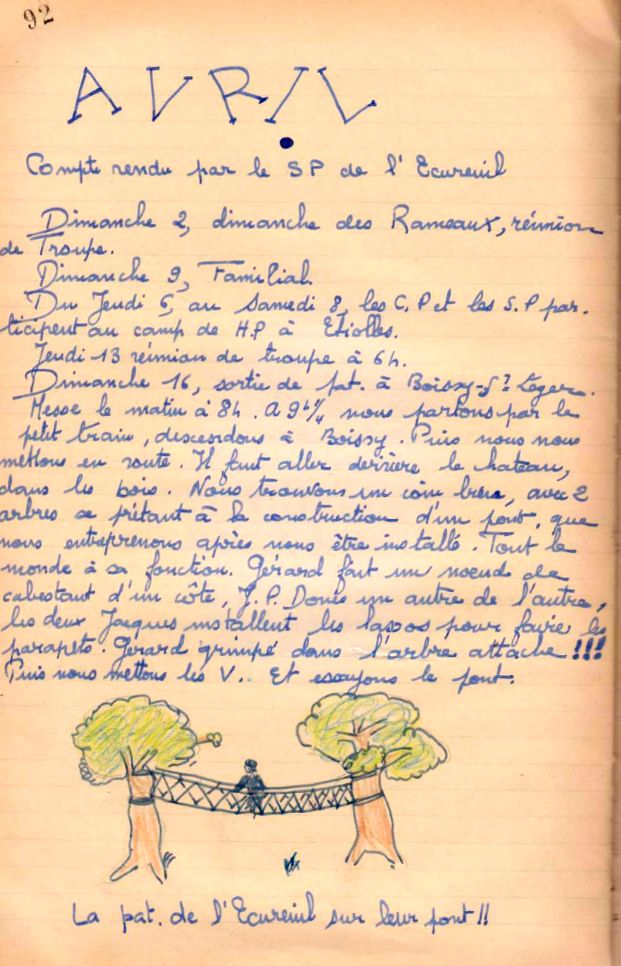 92
AVRIL
Compte rendu par le SP de l'Ecureuil
Dimanche 2, dimanche des Rameaux, réunion
de Troupe.
Dimanche 9, Familial.
Du Jeudi 6, au Samedi 8, les C.P et les S.P par-
ticipent au camp de H.P à Etiolles.
Jeudi 13 réunion de troupe à 6h.
Dimanche 16, sortie de pat. à Boissy-St Léger.
Messe le matin à 8h. A 9h 1/4 nous partons par le
petit train, descendons à Boissy. Puis nous nous
mettons en route. Il faut aller derrière le chateau,
dans les bois. Nous trouvons un coin bien, avec 2
arbres se prêtant à la construction d'un pont, que
nous entreprenons après nous être installé. Tout le
monde à sa fonction. Gérard fait un noeud de
cabestant d'un côte, J.P. Donis un autre de l'autre,
les deux Jacques installent les lassos pour faire les
parapets. Gerard grimpé dans l'arbre attache!!!
Puis nous mettons les V.. Et essayons le pont.
La pat. de l'Ecureuil sur leur pont!!